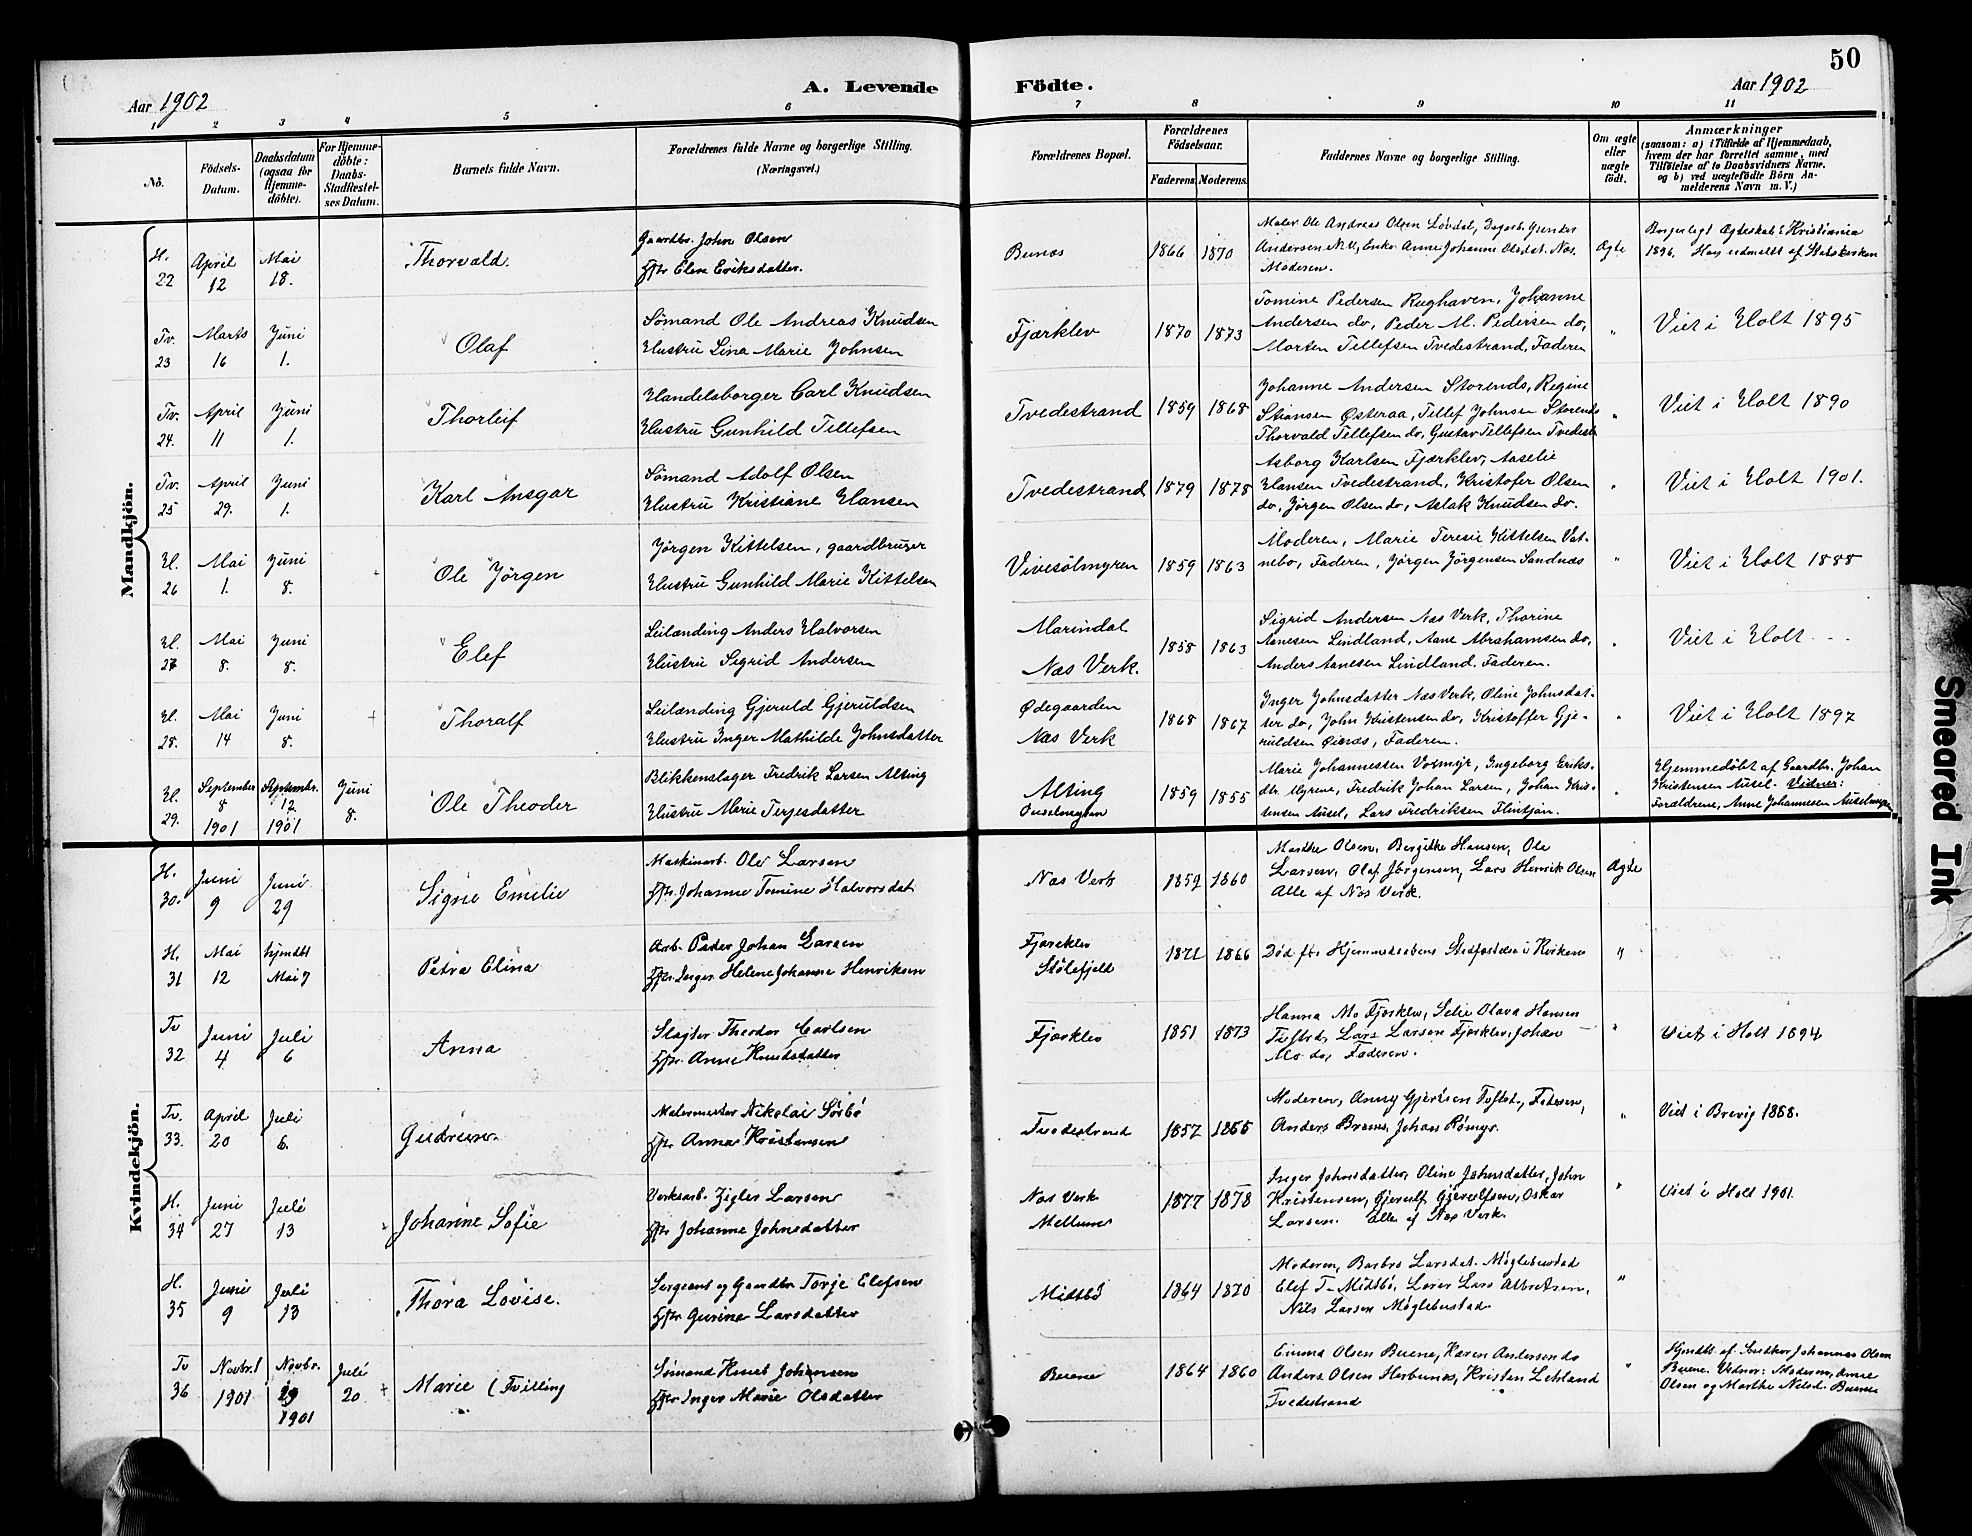 50
Aar 1902
A. Levende Födte.
Aar 1902
1 2 3 4 5 6 7 8 9 10 11
No.
Födsels-Datum.
Daabsdatum (ogsaa for Hjemmedöbte).
For Hjemmedöbte: Daabs-Stadfæstelses Datum.
Barnets fulde Navn.
Forældrenes fulde Navne og borgerlige Stilling. (Næringsvei.)
Forældrenes Bopæl.
Forældrenes Födselsaar.
Faderens. Moderens.
Faddernes Navne og borgerlige Stilling.
Om ægte eller uægte födt.
Anmærkninger
(saasom: a) i Tilfælde af Hjemmedaab, hvem der har forrettet samme, med Tilföielse af to Daabsvidners Navne. og b) ved uægtefödte Börn Anmelderens Navn m. V.)
Mandkjön.
H. 22 April 12 Mai 18. Thorvald.
Gaardbr. John Olsen
Hstr Elen Eriksdatter.
Bunæs 1866 1870
Maler Ole Andreas Olsen Løvdal,
Andersen Enke Anne Johanne Olsdat. Næs.
Moderen.
Ægte
Borgerligt Ægteskab i Kristiania
1896. Han udmeldt af Statskirken
Tv. 23 Marts 16 Juni 1. Olaf
Sömand Ole Andreas Knudsen
Hustru Lina Marie Johnsen
Fjærklev 1870 1873
Tomine Pedersen Rughaven, Johanne
Andersen do, Peder M. Pedersen do,
Morten Tellefsen Tvedestrand, Faderen
" Viet i Holt 1895
Tv. 24. April 11 Juni 1. Thorleif
Handelsborger Carl Knudsen
Hustru Gunhild Tellefsen
Tvedestrand 1859 1868
Johanne Andersen Storends, Regine
Stiansen Østeraa, Tellef Johnsen Storends
Thorvald Tellefsen do, Gustav Tellefsen Tvedestr
" Viet i Holt 1890
Tv. 25 April 29. Juni 1. Karl Ansgar
Sömand Adolf Olsen
Hustru Kristiane Hansen
Tvedestrand 1879 1878
Asborg Karlsen Fjærklev, Aaselie
Hansen Tvedestrand, Kristofer Olsen
do, Jörgen Olsen do, Aslak Knudsen do.
" Viet i Holt 1901.
H. 26 Mai 1. Juni 8. Ole Jörgen
Jörgen Kittelsen, gaardbruger
Hustru Gunhild Marie Kittelsen
Vivesölmyren 1859 1863
Moderen, Marie Teresie Kittelsen Vat-
nebo, Faderen, Jörgen Jörgensen Sandnæs
" Viet i Holt 1888
H. 27 Mai 8. Juni 8. Elef
Leilænding Anders Halvorsen
Hustru Sigrid Andersen
Marindal
Næs Verk.
1858 1863
Sigrid Andersen Næs Verk, Thorine
Aanesen Lindland, Aane Abrahamsen do,
Anders Aanesen Lindland, Faderen.
" Viet i Holt - - -
H. 28. Mai 14 Juni 8. Thoralf
Leilænding Gjeruld Gjeruldsen
Hustru Inger Mathilde Johnsdatter
Ødegaarden
Næs Verk
1868 1867
Inger Johnsdatter Næs Verk, Oline Johnsdat-
ter do, John Kristensen do, Kristoffer Gje-
ruldsen Øienæs, Faderen.
" Viet i Holt 1897
H. 29. September 8 1901 Septembr. 12 1901 Juni 8. Ole Theoder
Blikkenslager Fredrik Larsen Alting
Hustru Marie Terjesdatter
Alting
1859 1855
Marie Johannessen Ingeborg Eriks-
dtr Myrene, Fredrik Johan Larsen, Johan Kris-
tensen Ausel, Lars Fredriksen Flintjön.
" Hjemmedöbt af Gaardbr. Johan
Kristensen Ausel. Vidner:
Forældrene, Anne Johannesen Auselmyren
Kvindekjön.
H. 30. Juni 9 Juni 29 Signe Emilie
Maskinarb. Ole Larsen
Hstr Johanne Tomine Halvorsdat
Næs Verk 1859 1860
Marthe Olsen, Bergithe Hansen, Ole
Larsen, Olaf Jörgensen, Lars Henrik Olsen
Alle af Næs Verk.
Ægte
H. 31 Mai 12 Hjmdbt Mai 7 Petra Elina
Arb. Peder Johan Larsen
Hstr. Inger Helene Johanne Henriksen
Fjærklev
Stölefjeld
1866
Död för Hjemmedaabens Stadfæstelse i Kirken
"
Tv 32 Juni 4 Juli 6 Anna
Slagter Theodor Carlsen
Hstr Anne Knudsdatter
Fjærklev 1851 1873
Hanna Mo Fjærklev, Selie Olava Hansen
Lars Larsen Fjærklev, Johan
Mo do, Faderen.
" Viet i Holt 1894
Tv. 33. April 20 Juli 6. Gudrun.
Malermester Nikolai Sörbö
Hstr Anna Kristensen
Tvedestrand 1857
Moderen, Faderen,
Anders Johan
" Viet i Brevig 1888.
H. 34 Juni 27 Juli 13 Johanne Sofie
Verksarb. Zigler Larsen
Hstr Johanne Johnsdatter
Næs Verk
Mellum
1877 1878
Inger Johnsdatter, Oline Johnsdatter, John
Kristensen, Gjerulf Gjerulfsen, Oskar
Larsen. Alle af Næs Verk.
" Viet i Holt 1901.
H. 35 Juni 9 Juli 13 Thora Lovise.
Sergeant og Gaardbr Torje Elefsen
Hstr Gurine Larsdatter
Midtbö 1864 1870
Moderen, Barbro Larsdat. Möglebustad
Elef T. Midtbö, Lærer Lars Albretsen,
Nils Larsen Möglebustad.
"
Tv 36 Novbr. 1 1901 Novbr. 29 1901 Juli 20 Marie (Tvilling
Sömand Knut Johansen
Hstr Inger Marie Olsdatter
Buene 1864 1860
Emma Olsen Buene, Karen Andersen do
Anders Olsen Kristen Lehland
Tvedestrand
" Hjmdbt. af Johannes Olsen
Buene. Vidner: Moderen, Anne
Olsen og Marthe Nilsd. Buene
Smeared Ink